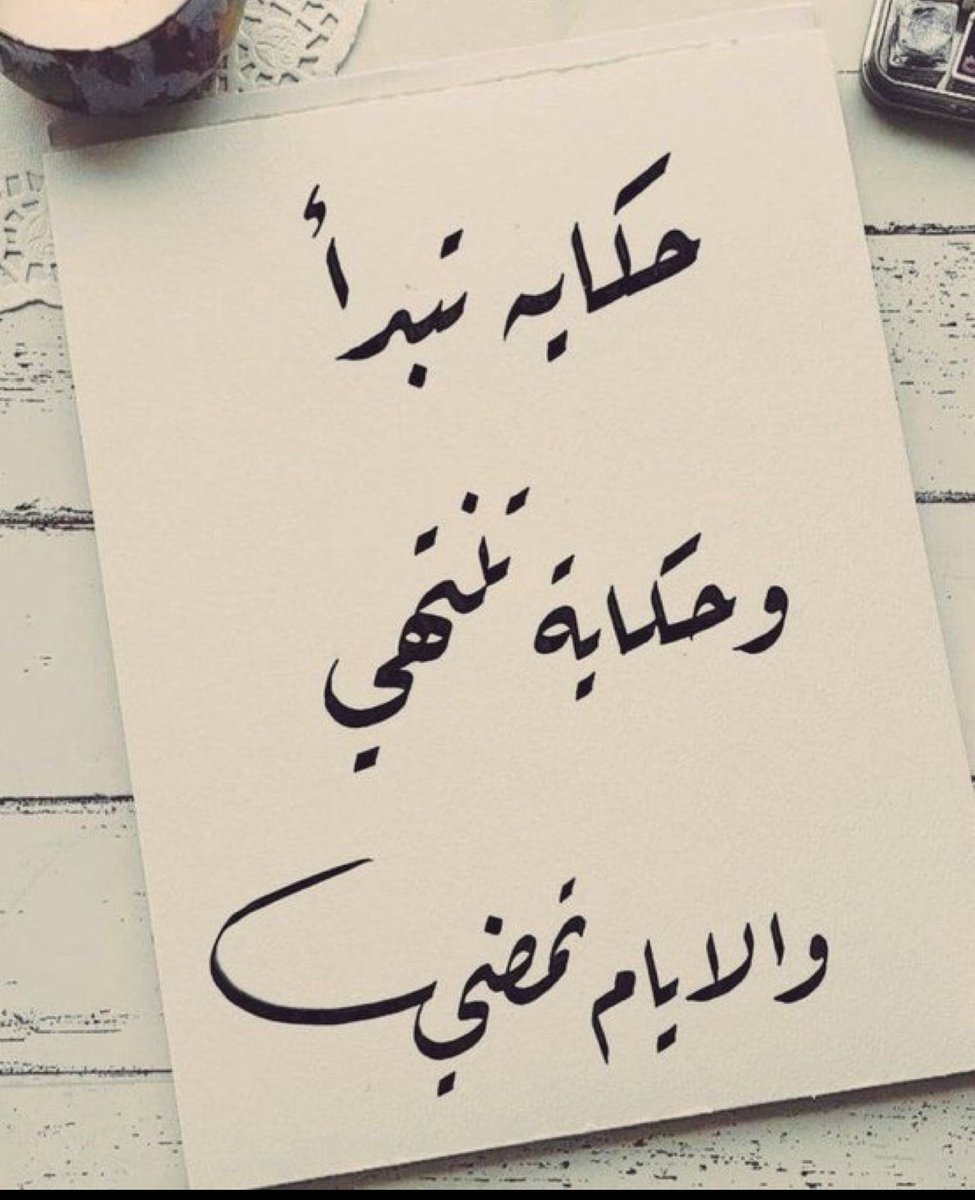 حكايه تبدأ
وحكاية تنتهي
والايام تمضي